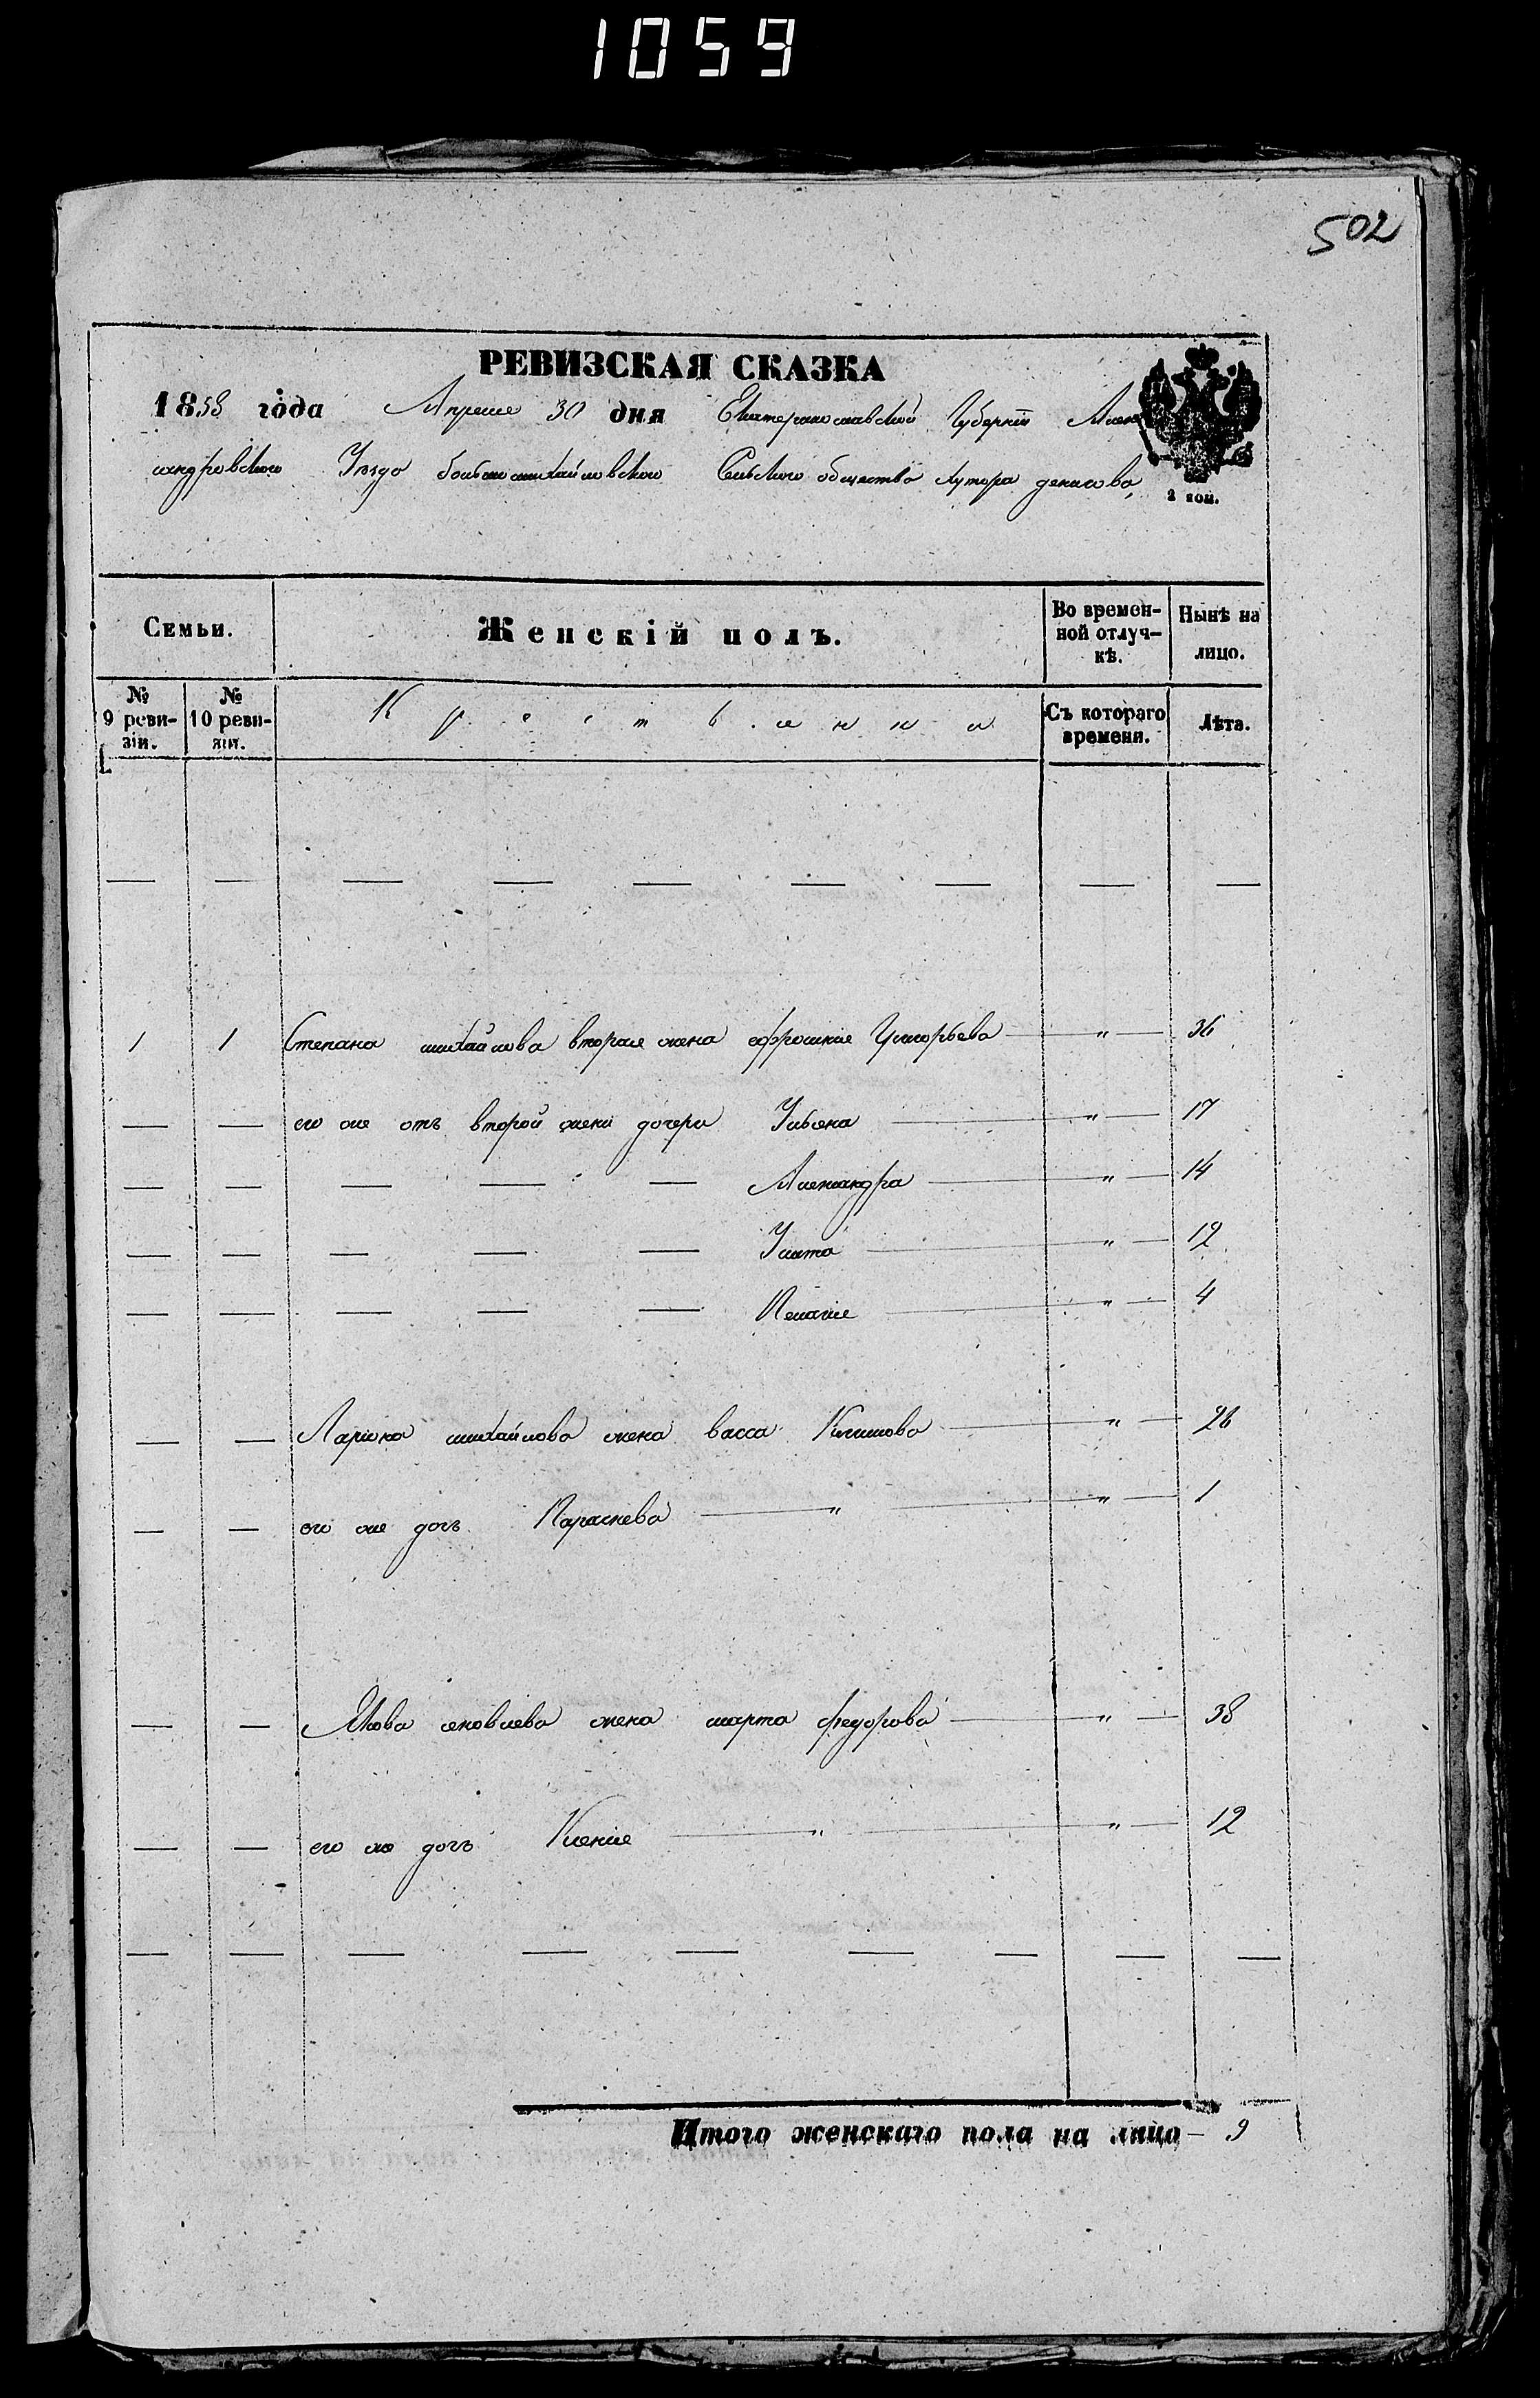 1059
502
РЕВИЗСКАЯ СКАЗКА
1858 года Апреля 30 дня Екатеринославской Губерніи Алек
сандровского Уезда большемихайловского Сельского общества хутора денисова
2 коп.
Семьи. Женскій полъ. Во времен- Нынѣ на
ной отлуч- лицо.
кѣ.
№ № Крестьяне Съ котораго Лѣта.
9 реви- 10 реви- времени.
зіи. зіи.
— — — — — — — — —
1 1 Степана михайлова вторая жена ефросинія — " — 36
— — его же отъ второй жени дочери Ульяна — " — 17
— — — — — Александра — " — 14
— — — — — Улита — " — 12
— — — — — Пелагия — " — 4
— — Лариона михайлова жена васса Климова — " — 26
— — его же дочь Параскева — " — " — 1
— — Якова яковлева жена марта федорова — " — 38
— — его же дочь Ксения — " — " — 12
— — — — — — — — —
Итого женскаго пола на лицо — 9